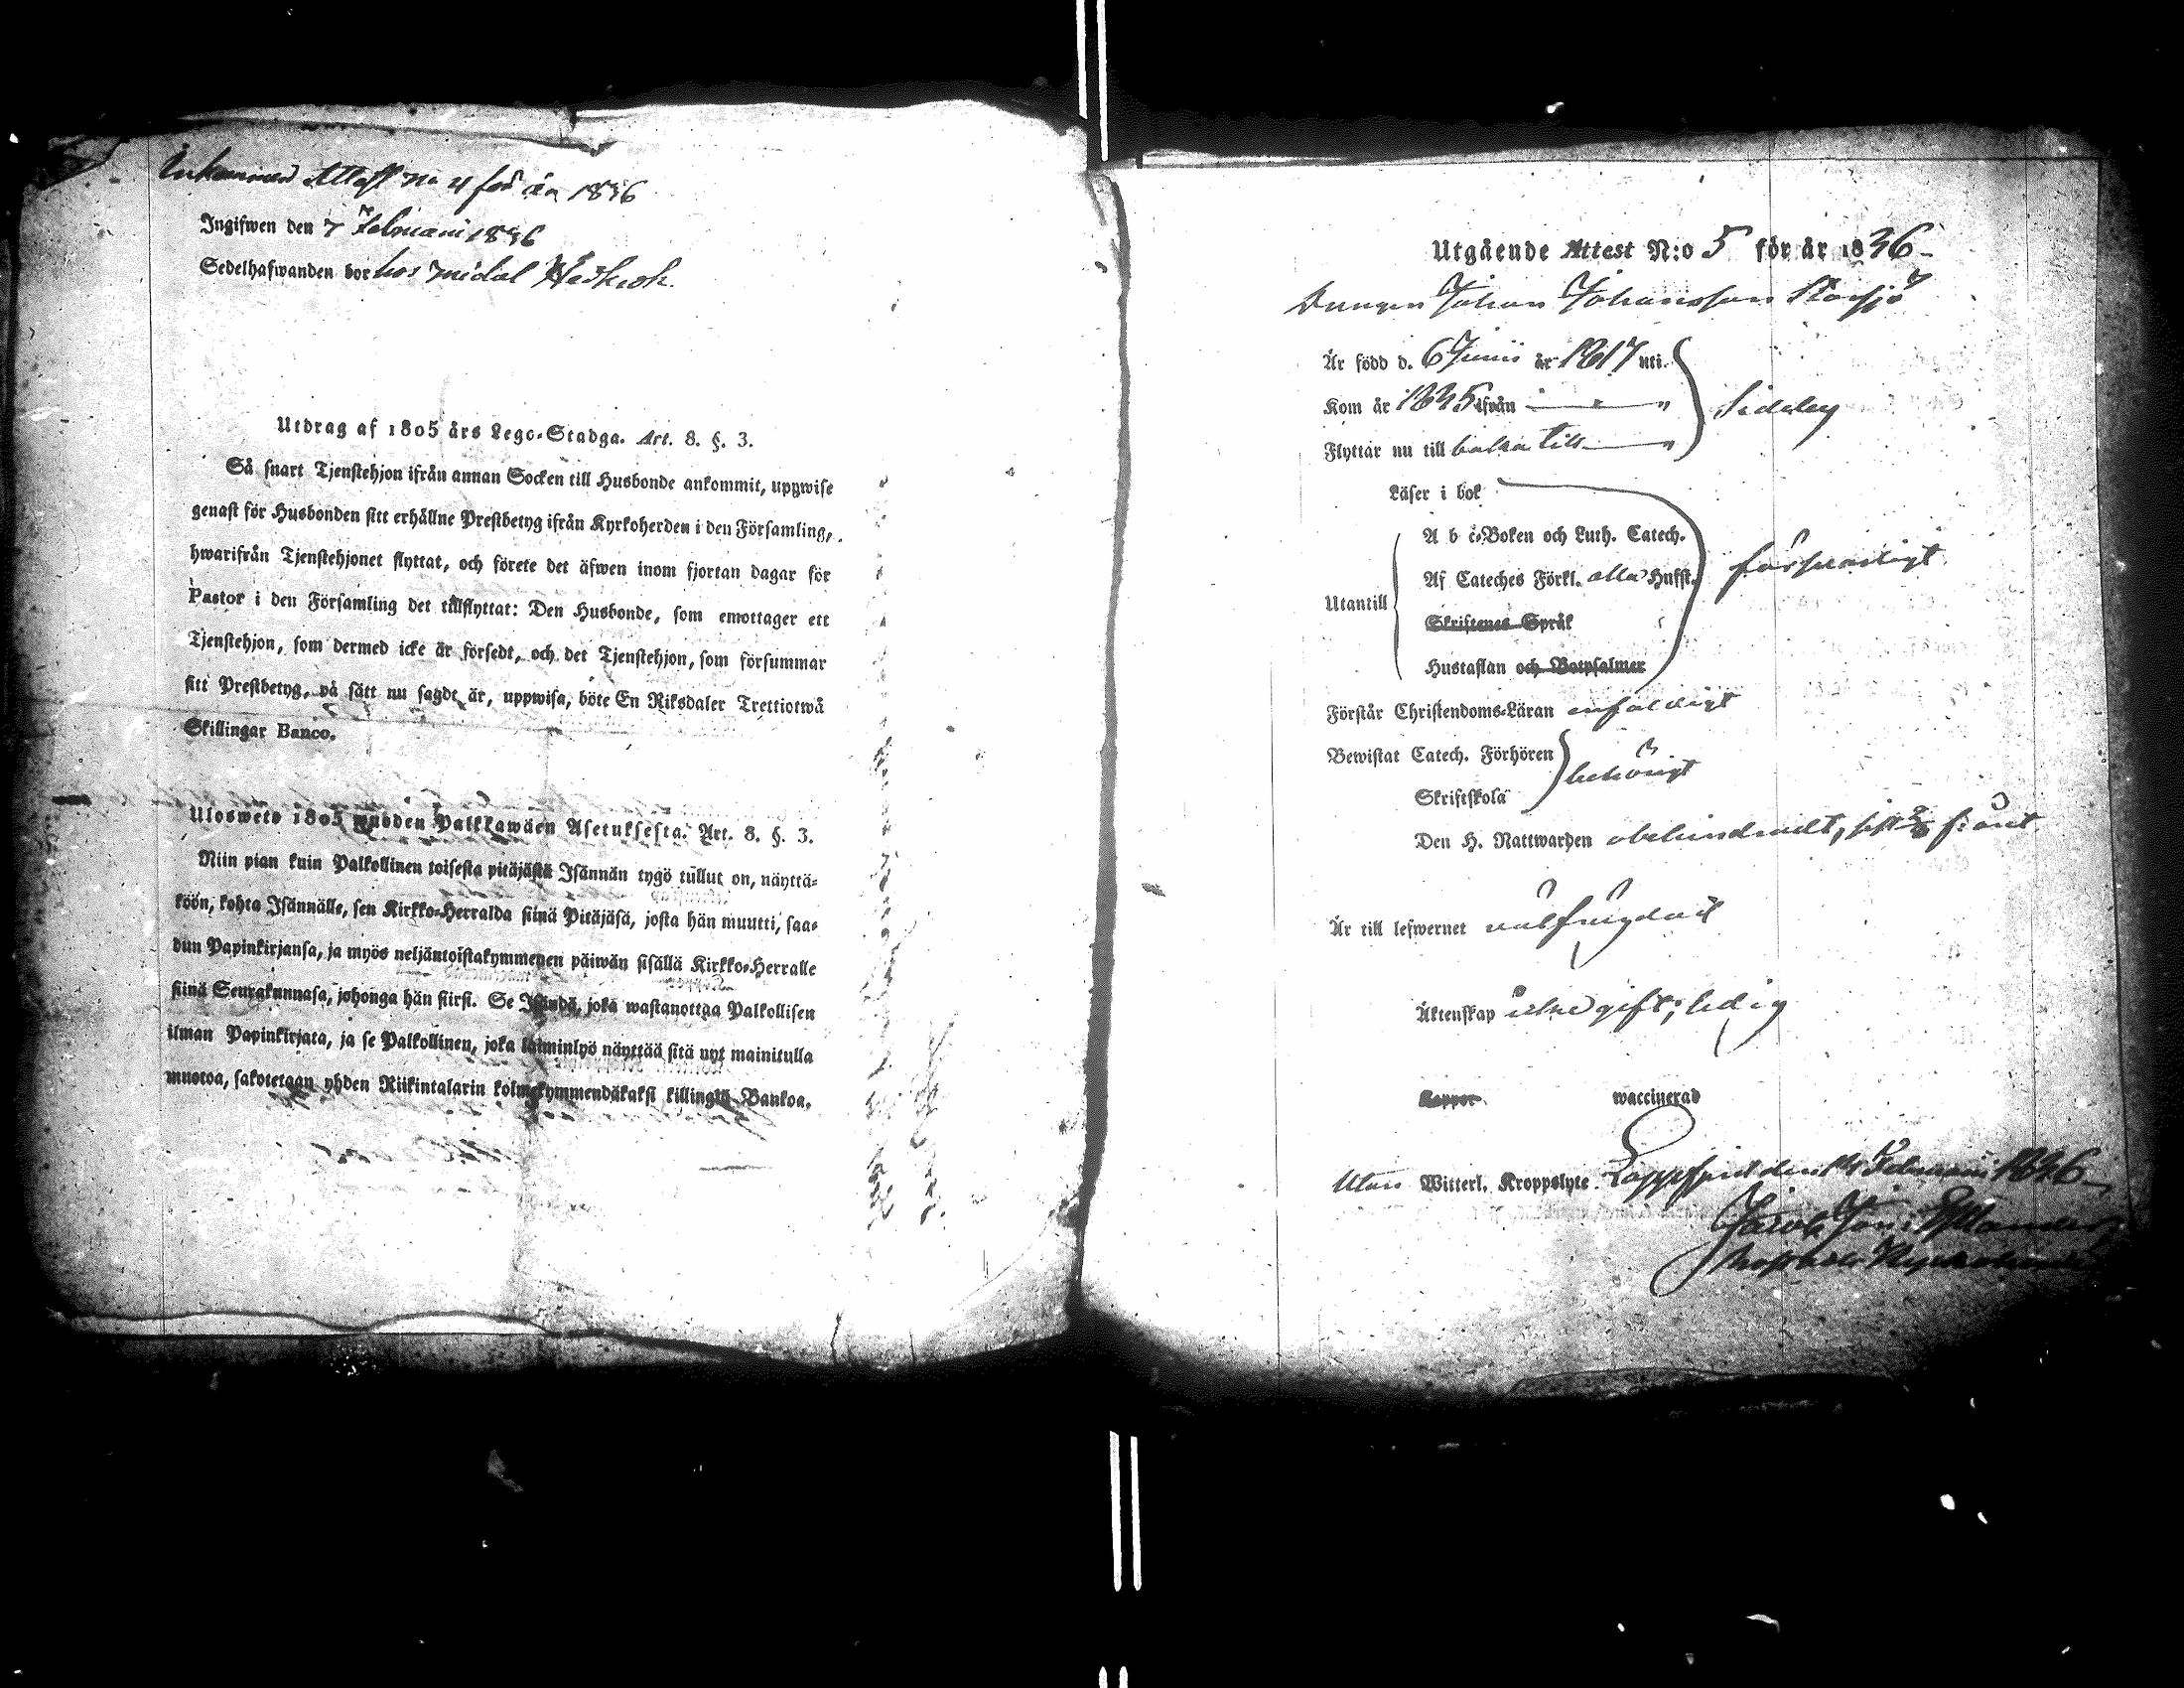 Inkommen Attest No 4 för år 1836
Ingifwen den 7 Februarii 1836
Sedelhafwanden bor hos
Utdrag af 1805 års Lego-Stadga. Art. 8. §. 3.
Så snart Tjenstehjon ifrån annan Socken till Husbonde ankommit, uppwise
genast för Husbonden sitt erhållne Prestbetyg ifrån Kyrkoherden i den Församling,
hwarifrån Tjenstehjonet flyttat, och förete det äfwen inom fjortan dagar för
Pastor i den Församling det tillflyttat: Den Husbonde, som emottager ett
Tjenstehjon, som dermed icke är försedt, och det Tjenstehjon, som försummar
sitt Prestbetyg, på sätt nu sagdt är, uppwisa, böte En Riksdaler Trettiotwå
Skillingar Banco.
Ulosweto 1805 wuoden Palkkawäen Asetuksesta. Art. 8. §. 3.
Niin pian kuin Palkollinen toisesta pitäjästä Isännän tygö tullut on, näyttä-
köön, kohta Isännälle, sen Kirkko-Herralda siinä Pitäjäsä, josta hän muutti, saa-
dun Papinkirjansa, ja myös neljäntoistakymmenen päiwän sisällä Kirkko-Herralle
siinä Seurakunnasa, johonga hän siirsi. Se Isändä, joka wastanottaa Palkollisen
ilman Papinkirjata, ja se Palkollinen, joka laiminlyö näyttää sitä nyt mainitulla
muotoa, sakotetaan yhden Riikintalarin kolmekymmendäkaksi killingiä Bankoa.
Utgående Attest N:o 5 för år 1836
Drengen Johan Johansson
Är född d. 6 Junii år 1817 uti
Kom år 1835 ifrån — " — "
Sideby
Flyttar nu till baka till — "
Läser i bok
A b c-Boken och Luth. Catech.
Af Cateches Förkl. alla Hufst.
försvarligt
Utantill
Skriftenes Språk
Hustaflan och Botpsalmer
Förstår Christendoms-Läran enfaldigt
Bewistat Catech. Förhören
behörigt
Skriftskola
Den H. Nattwarden obehindradt,
Är till lefwernet välfrägdad
Äktenskap icke gift; ledig
Koppor waccinerad
Utan Witterl. Kroppslyte. Lappfjärd den 14 Februarii 1836
Jacob